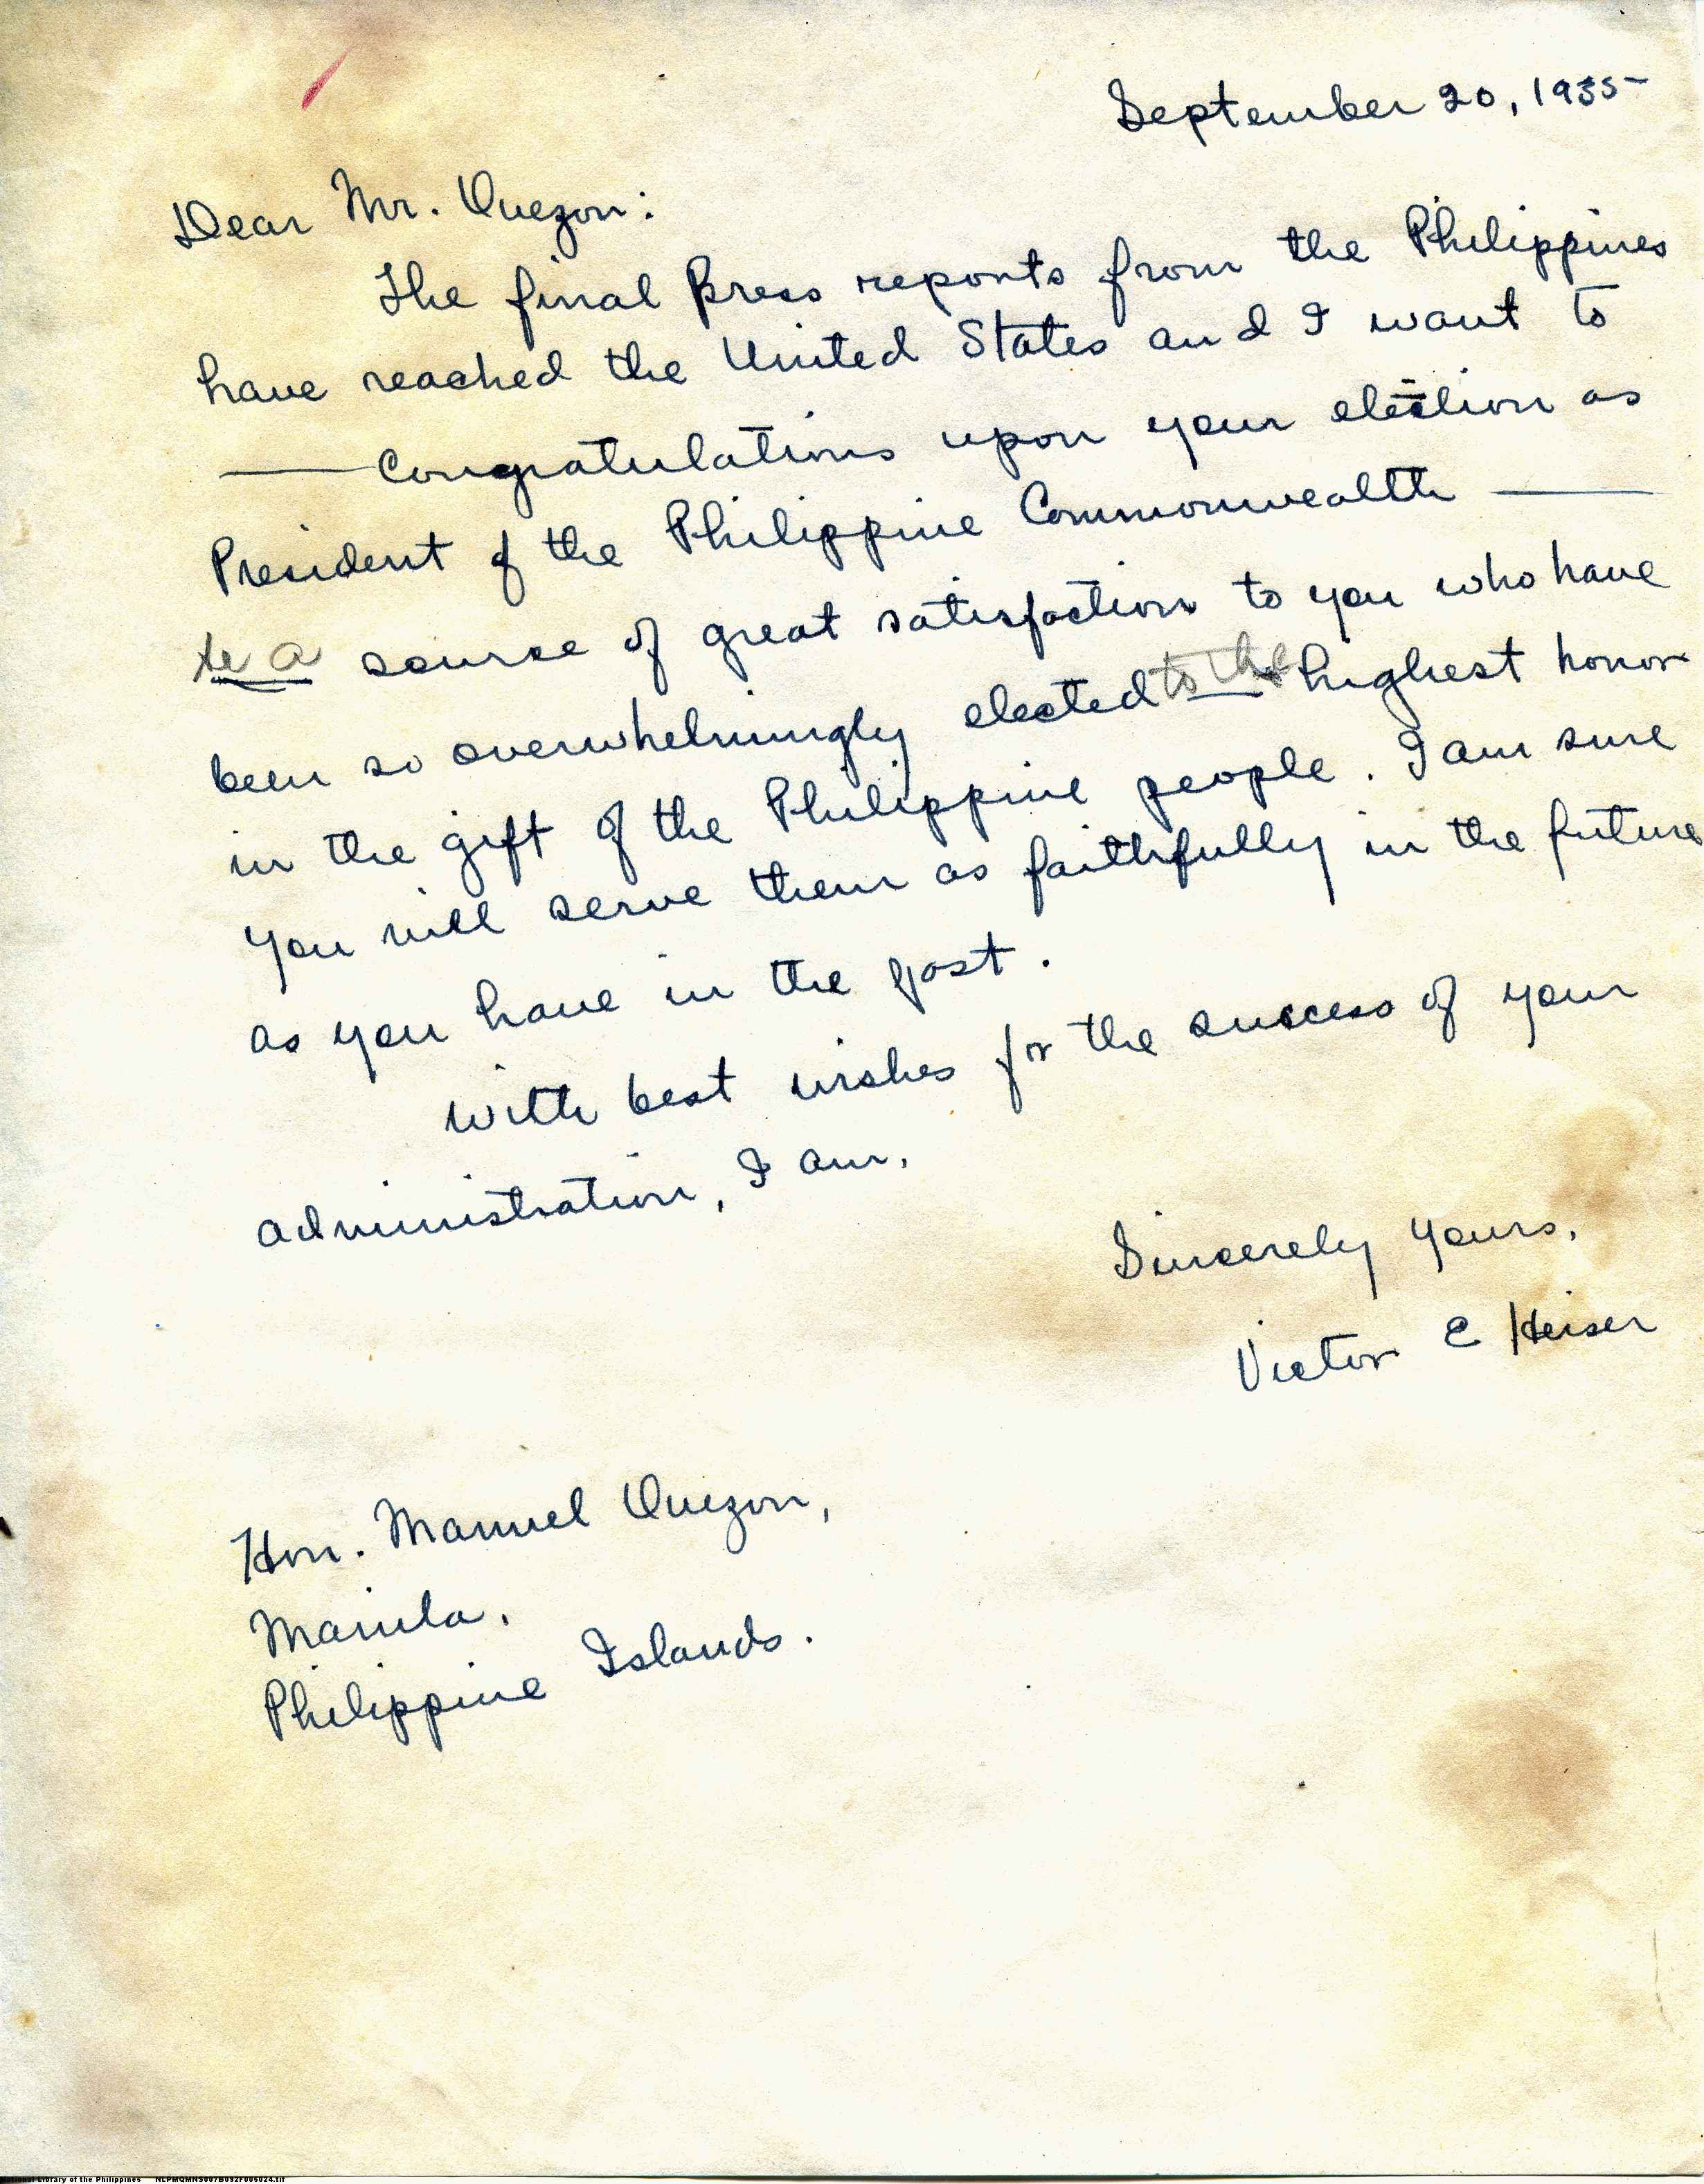 September 20, 1935
Dear Mr. Quezon:
The final Press reports from the Philippines
have reached the United States and I want to
—— Congratulations upon your election as
President of the Philippine Commonwealth ——
be a source of great satisfaction to you who have
been so overwhelmingly elected to the highest honor
in the gift of the Philippine people. I am sure
you will serve them as faithfully in the future
as you have in the past.
With best wishes for the success of your
administration, I am,
Sincerely yours,
Victor E Heiser
Hon. Manuel Quezon,
Manila,
Philippine Islands.
National Library of the Philippines